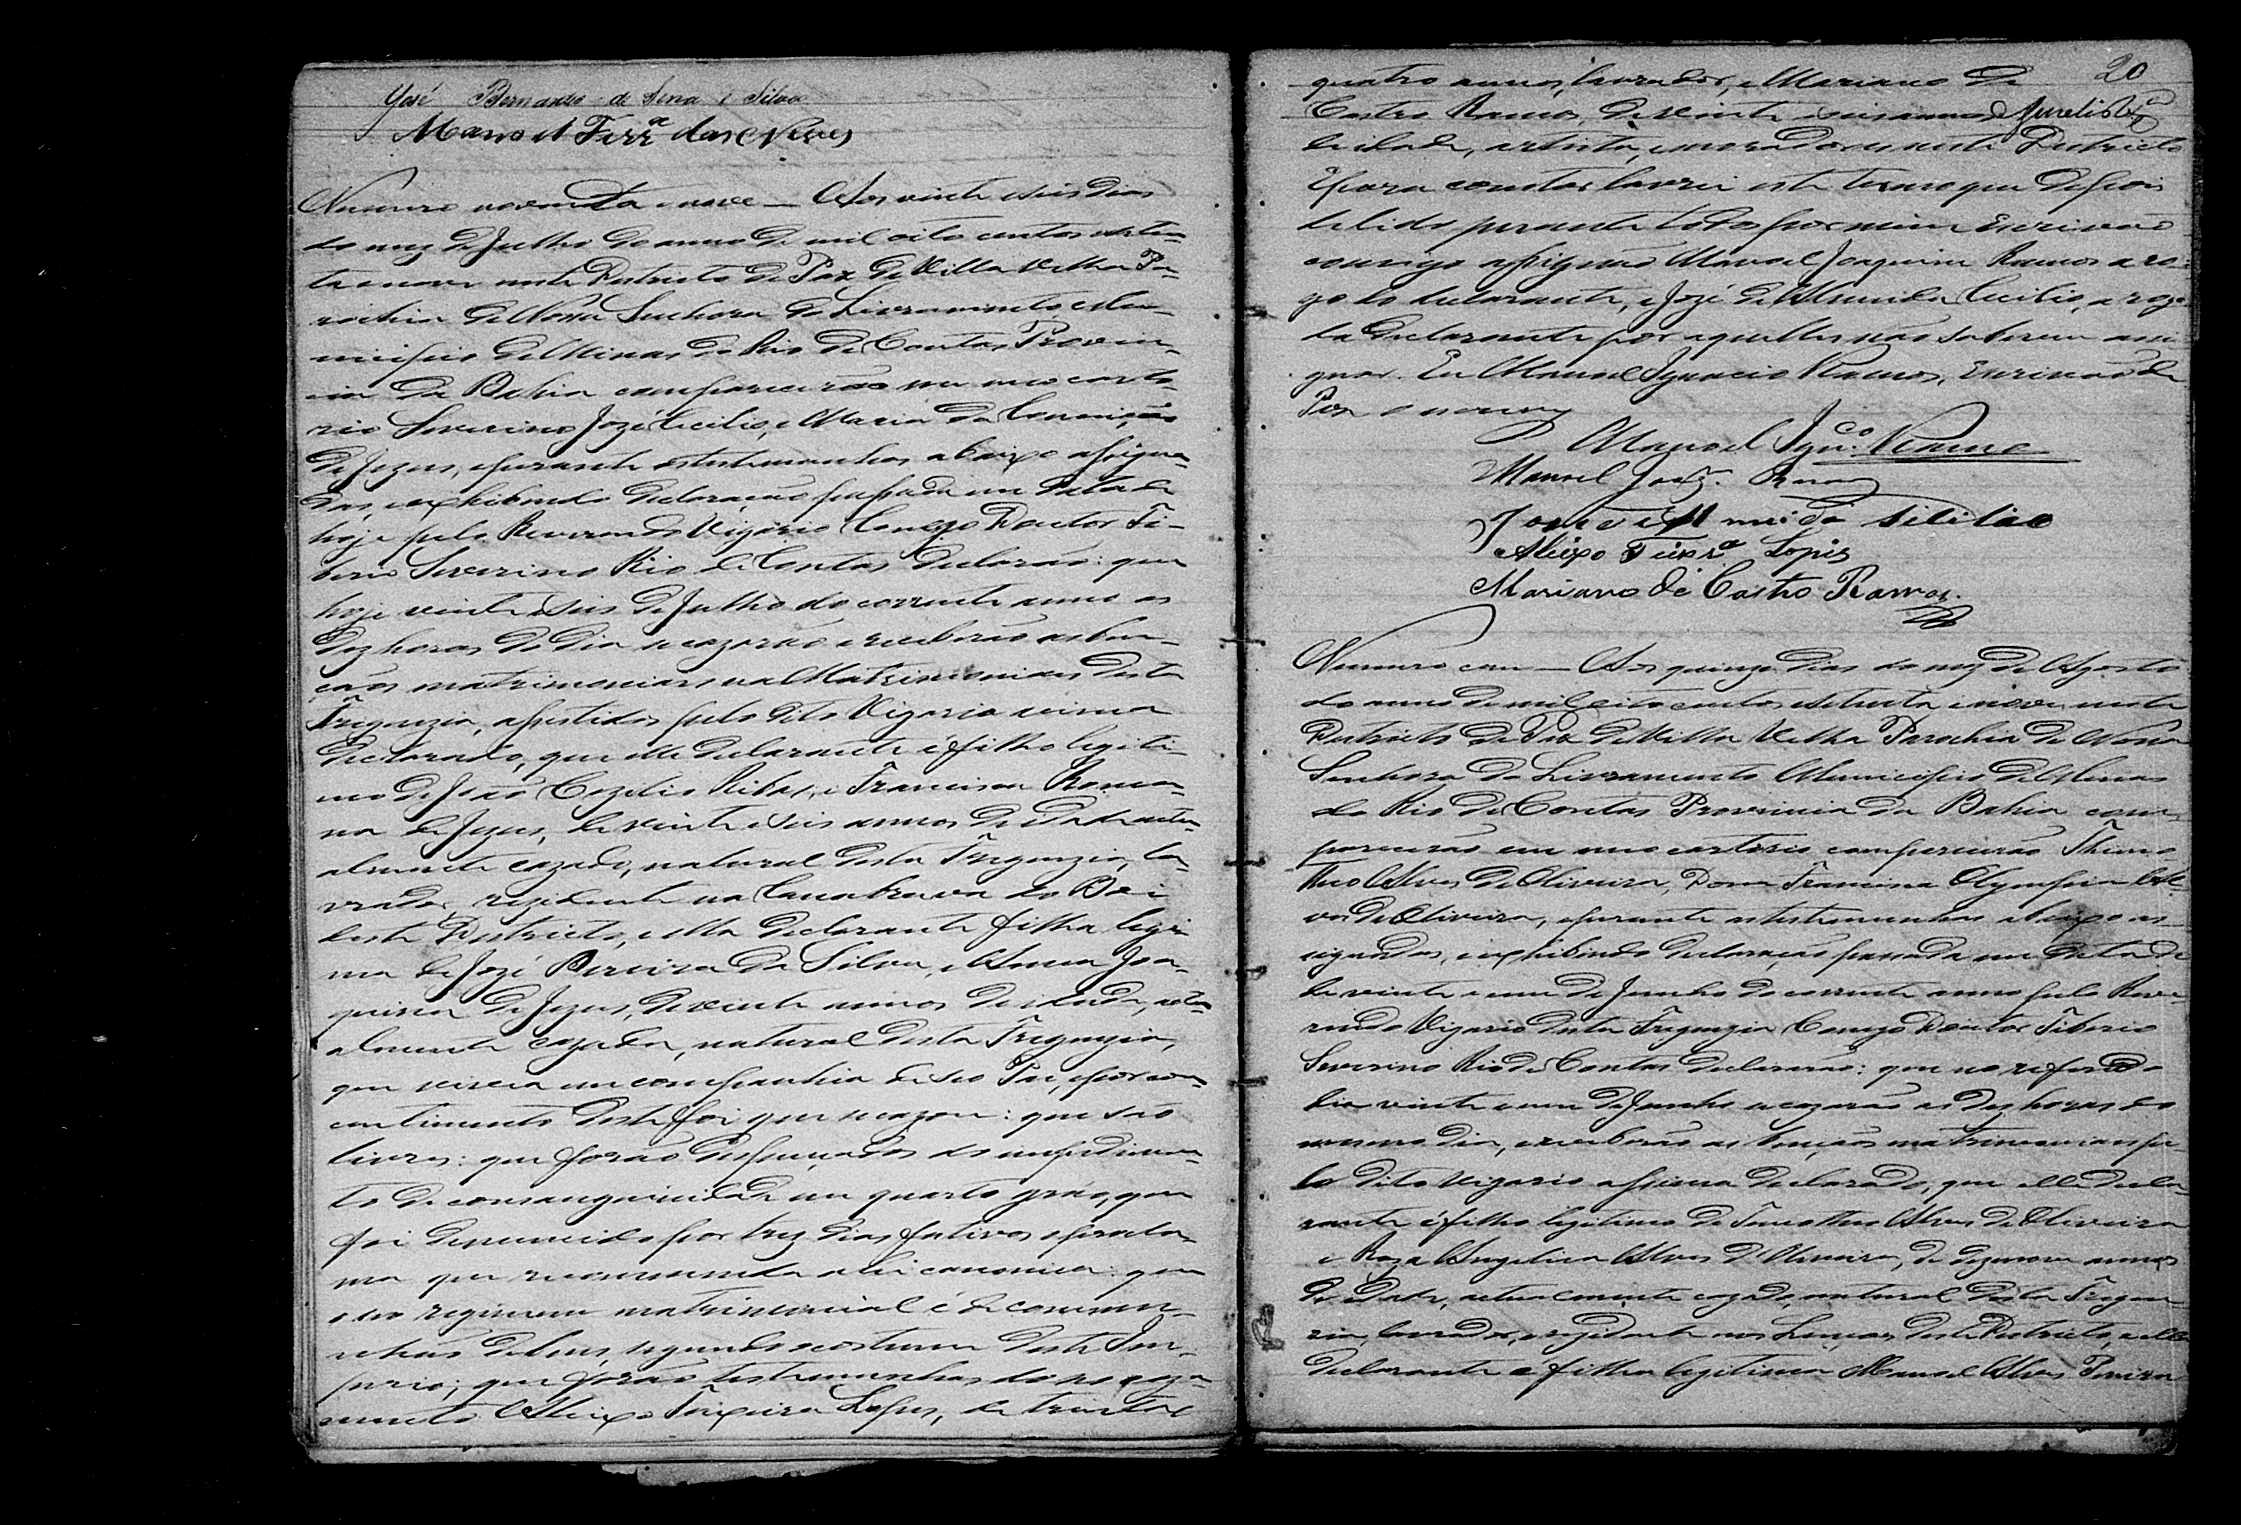 José Bernardo de Sena e Silva
Manoel Ferrª das Neves
Numero noventa e nove — Aos vinte e seis dias
do mez de Julho do anno de mil oito centos e seten-
ta e nove neste Districto de Paz de Villa Velha Pa-
rochia de Nossa Senhora do Livramento, e Mu-
nicipio de Minas do Rio de Contas Provin-
cia da Bahia comparecerão em meo carto-
rio Severino Jozé Cecilio, e Maria da Conceição
de Jezus, e perante as testemunhas abaixo assigna-
das, e exhibindo declaração passada em data de
hoje pelo Reverendo Vigario Conego Doutor Ti-
berio Severino Rio de Contas declarão: que
hoje vinte e seis de Julho do corrente anno as
dez horas do dia se cazarão e receberão as ben-
çaõs matrimoniaes na Matris desta
Freguezia, assistidos pelo dito Vigario acima
declarado, que elle declarante é filho legiti-
mo de João Cezilio Ribas, e Francisca Roma-
na de Jezus, de vinte e seis annos de idade actu-
almente cazado, natural desta Freguezia, la-
vrador rezidente na Cannabrava do Boi
deste Districto, e ella declarante filha legi-
ma de Jozé Pereira da Silva, e Anna Joa-
quina de Jezus, de vinte annos de idade, actu-
almente cazada, natural desta Freguezia,
que vivera em companhia de seo Pai, e por con-
centimento deste foi que se cazou: que são
livres: que forão dispençados do impedimen-
to de consanguinidade em quarto gráo, que
foi denunciado por trez dias festivos e pela for-
ma que recommenda a lei canonica: que
o seo regimem matrimonial é de commu-
nhão de bens, segundo o costume deste Im-
perio; que forão testemunhas do seo caza-
mento Aleixo Teixeira Lopes, de trinta e
20
quatro annos, lavrador, e Mariano de
Castro Ramos, de vinte e seis annos
de idade, artista, e moradores neste Districto
E para constar lavrei este termo que depois
de lido perante todos por mim Escrivão
comigo assignão Manoel Joaquim Ramos a ro-
go do declarante, e Jozé de Almeida Cecilio, a rogo
da declarante por aquelles não saberem assi-
gnar. Eu Manoel Ignacio Ramos, Escrivão de
Paz o escrevy
Manoel Ignco. Ramos
Manoel Joaqm. Ramos
Jose de Almeida Sicilio
Aleixo Teixrª Lopes
Mariano de Castro Ramos.
Numero cem — Aos quinze dias do mez de Agosto
do anno de mil oito centos e setenta e nove neste
Districto de Paz de Villa Velha Parochia de Nossa
Senhora do Livramento Municipio de Minas
do Rio de Contas Provincia da Bahia com-
parecerão em meo cartorio comparecerão Thimo-
theo Alves de Oliveira, Dona Francina Olympia Al-
ves de Oliveira, e perante as testemunhas abaixo as-
signadas, e exhibindo declaração passada em data de
de vinte e um de Junho do corrente anno pelo Reve-
rendo Vigario desta Freguezia Conego Doutor Tiberio
Severino Rio de Contas declararão: que no referido
dia vinte e um de Junho se cazarão as dez horas do
mesmo dia, e receberão as bençãos matrimoniaes pe-
lo dito Vigario assima declarado, que elle decla-
rante é filho legitimo de Timotheo Alves de Oliveira
e Roza Angelica Alves d'Oliveira, de dezenove annos
de idade, actualmente cazado, natural desta Fregue-
zia, lavrador, e rezidente nos deste Districto, e ella
declarante é filha legitima Manoel Alves Pereira